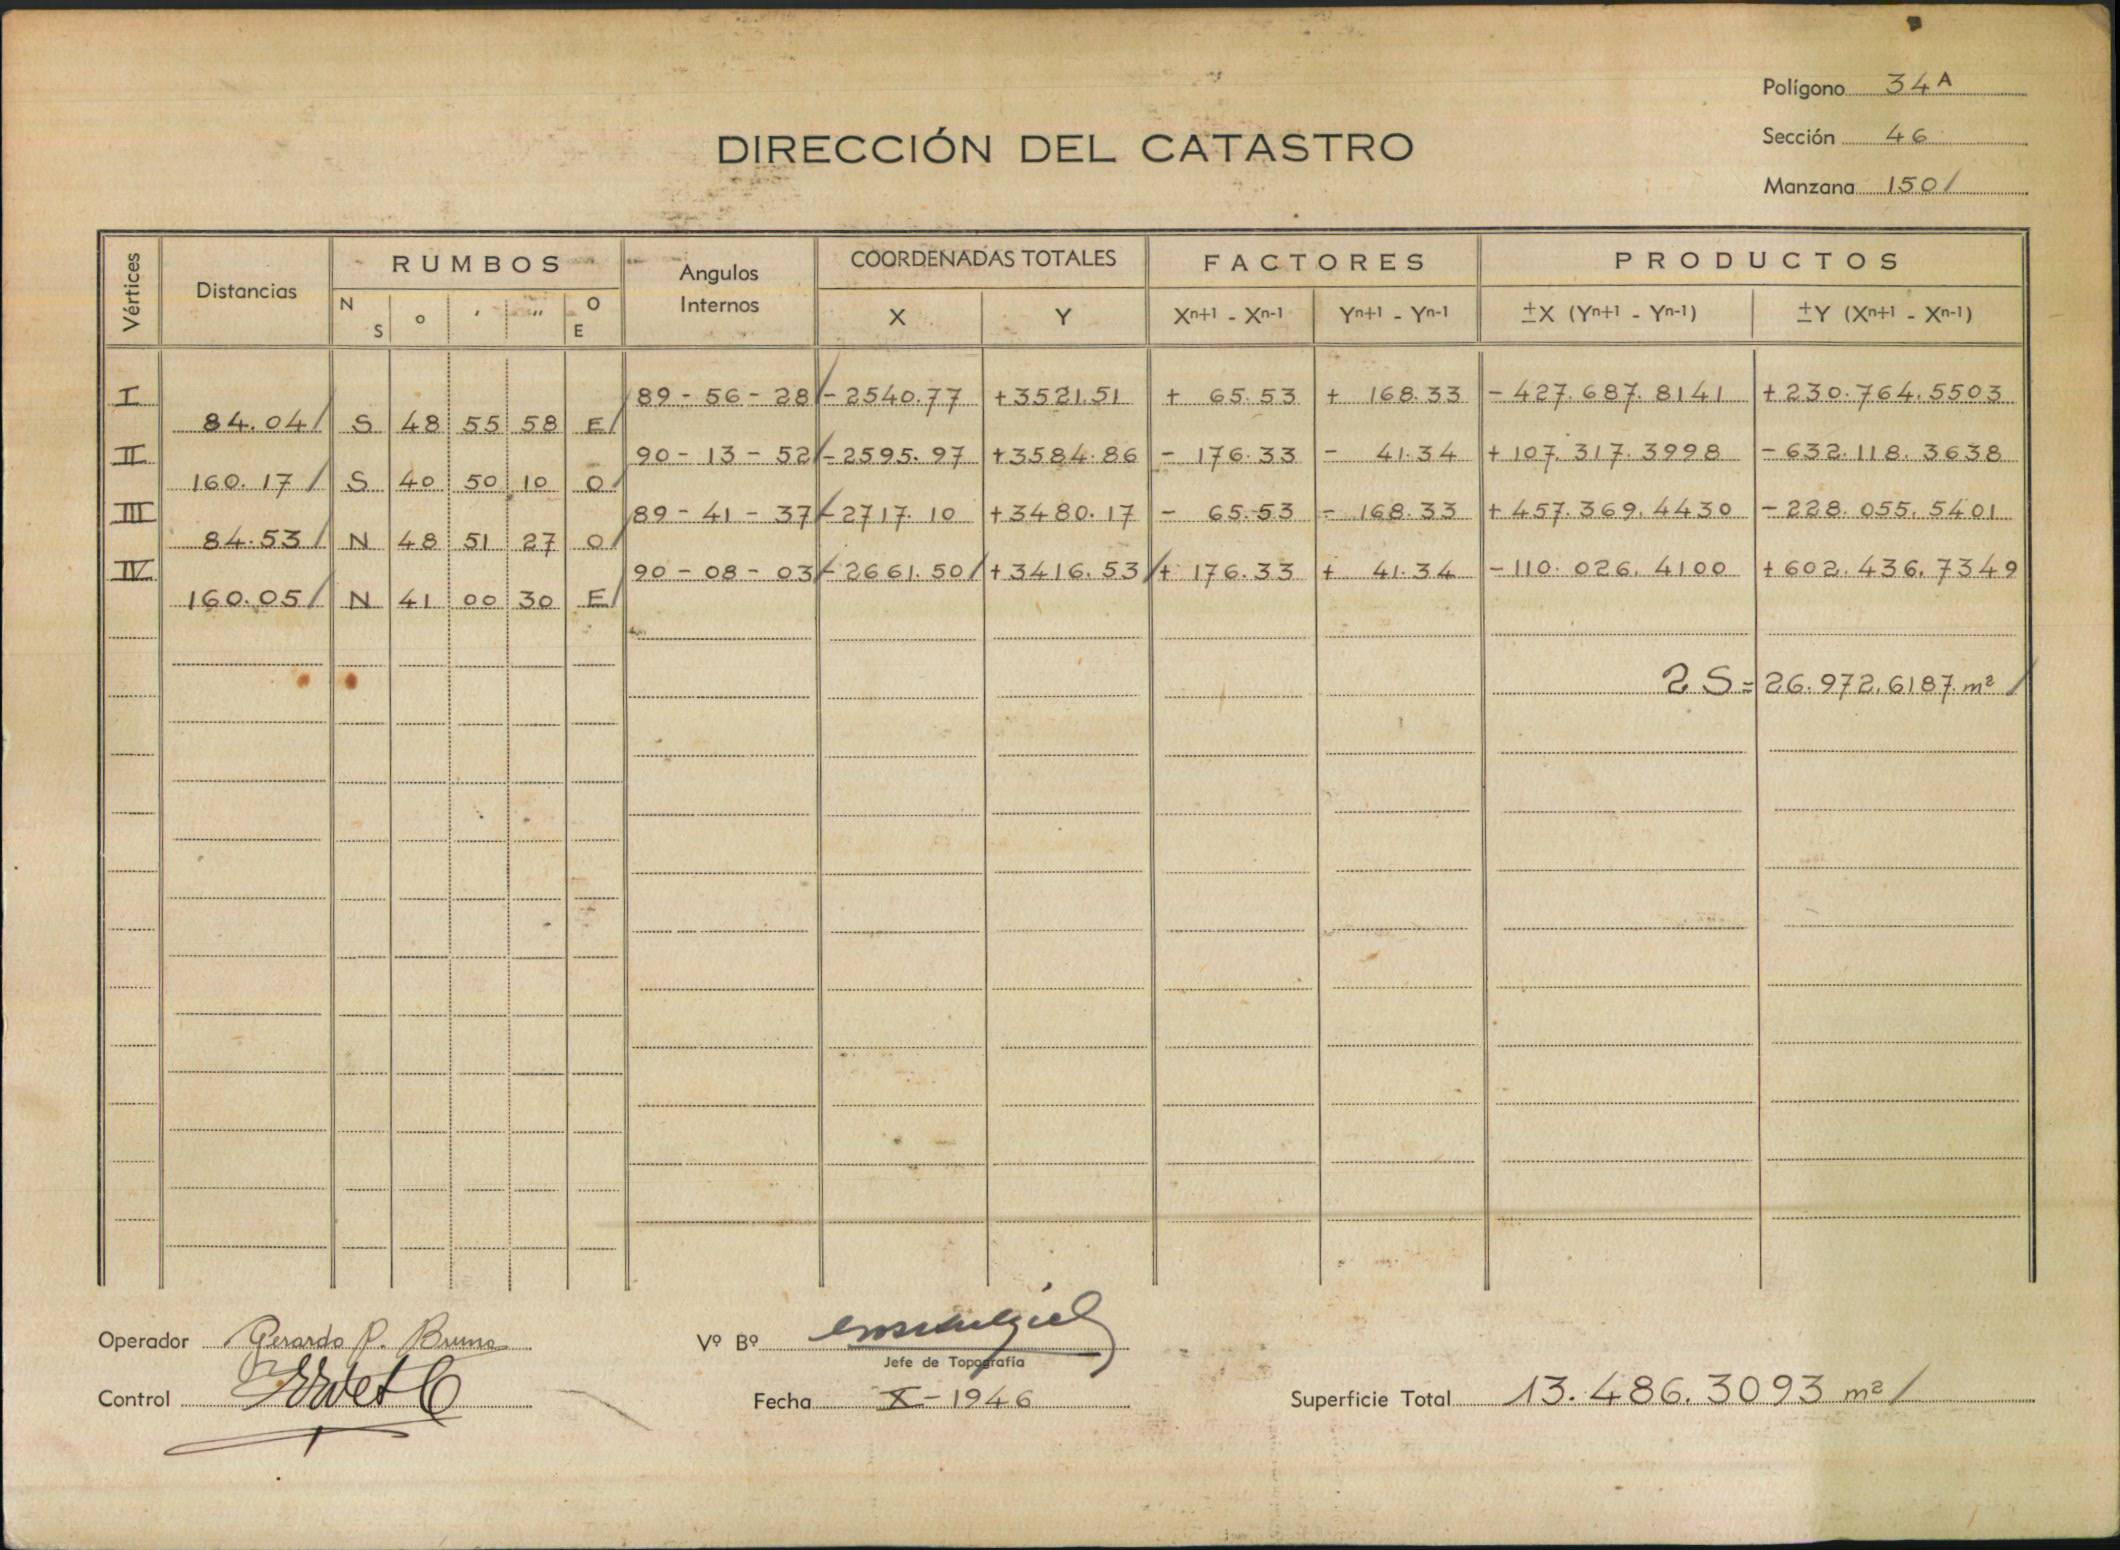 Polígono 34 A
Sección 46
Manzana 150/
DIRECCIÓN DEL CATASTRO
Vértices Distancias RUMBOS Angulos Internos COORDENADAS TOTALES FACTORES PRODUCTOS
N S o ' '' O E X Y Xn+1 - Xn-1 Yn+1 - Yn-1 ±X (Yn+1 - Yn-1) ±Y (Xn+1 - Xn-1)
I 89-56-28/ -2540.77 +3521.51 + 65.53 + 168.33 -427.687.8141 +230.764.5503
84.04/ S 48 55 58 E/
II 90-13-52/ -2595.97 +3584.86 - 176.33 - 41.34 +107.317.3998 -632.118.3638
160.17/ S 40 50 10 O/
III 89-41-37/ -2717.10 +3480.17 - 65.53 - 168.33 +457.369.4430 -228.055.5401
84.53/ N 48 51 27 O/
IV 90-08-03/ -2661.50/ +3416.53/ + 176.33 + 41.34 -110.026.4100 +602.436.7349
160.05/ N 41 00 30 E/
2 S = 26.972.6187 m²/
Operador Gerardo P. Bruno
Vº Bº
Jefe de Topografía
Control
Fecha X-1946
Superficie Total 13.486.3093 m²/